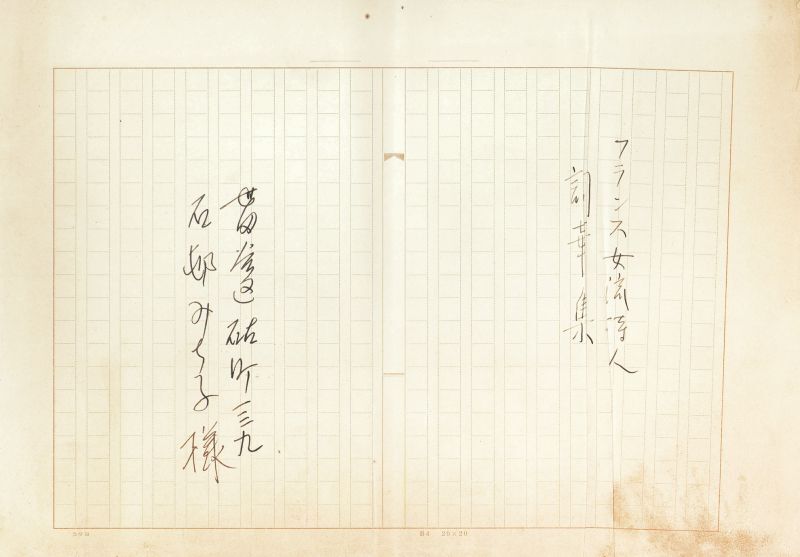 フランス女流詩人
詞華集
世田谷区砧町一三九
石邨みち子様
B4 20×20